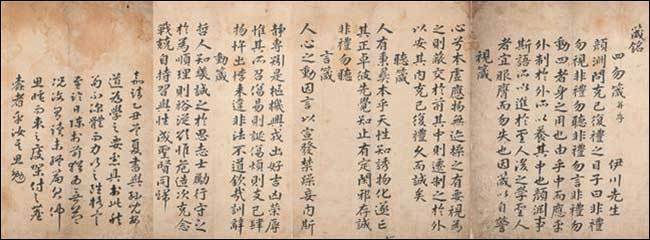 箴銘
四勿箴并序 伊川先生
顔淵問克己復禮之目子曰非禮
勿視非禮勿聽非禮勿言非禮勿
動四者身之用也由乎中而應乎
外制於外所以養其中也顔淵事
斯語所以進於聖人後之學聖人
者宜服膺而勿失也因箴以自警
視箴
心兮本虛應物無迹操之有要視爲
之則蔽交於前其中則遷制之於外
以安其內克己復禮久而誠矣
聽箴
人有秉彝本乎天性知誘物化遂亡
其正卓彼先覺知止有定閑邪存誠
非禮勿聽
言箴
人心之動因言以宣發禁躁妄內斯
靜專矧是樞機興戎出好吉凶榮辱
惟其所召傷易則誕傷煩則支己肆
物忤出悖來違非法不道欽哉訓辭
動箴
哲人知幾誠之於思志士勵行守之
於爲順理則裕從欲惟危造次克念
戰兢自持習與性成聖賢同歸
嘉靖乙丑夏書與孫兒安
道爲學之要盡具於此